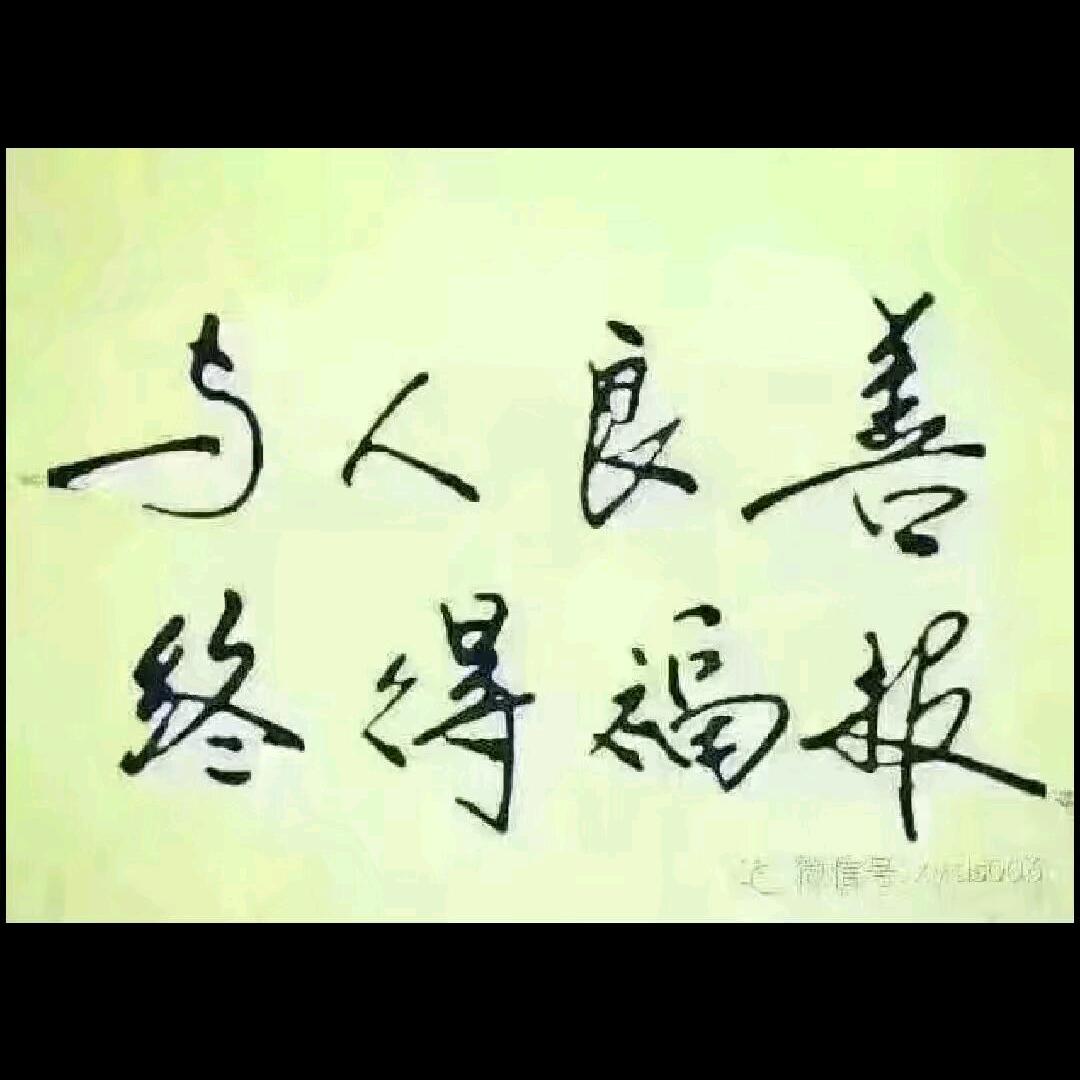 与人良善
终得福报
微信号